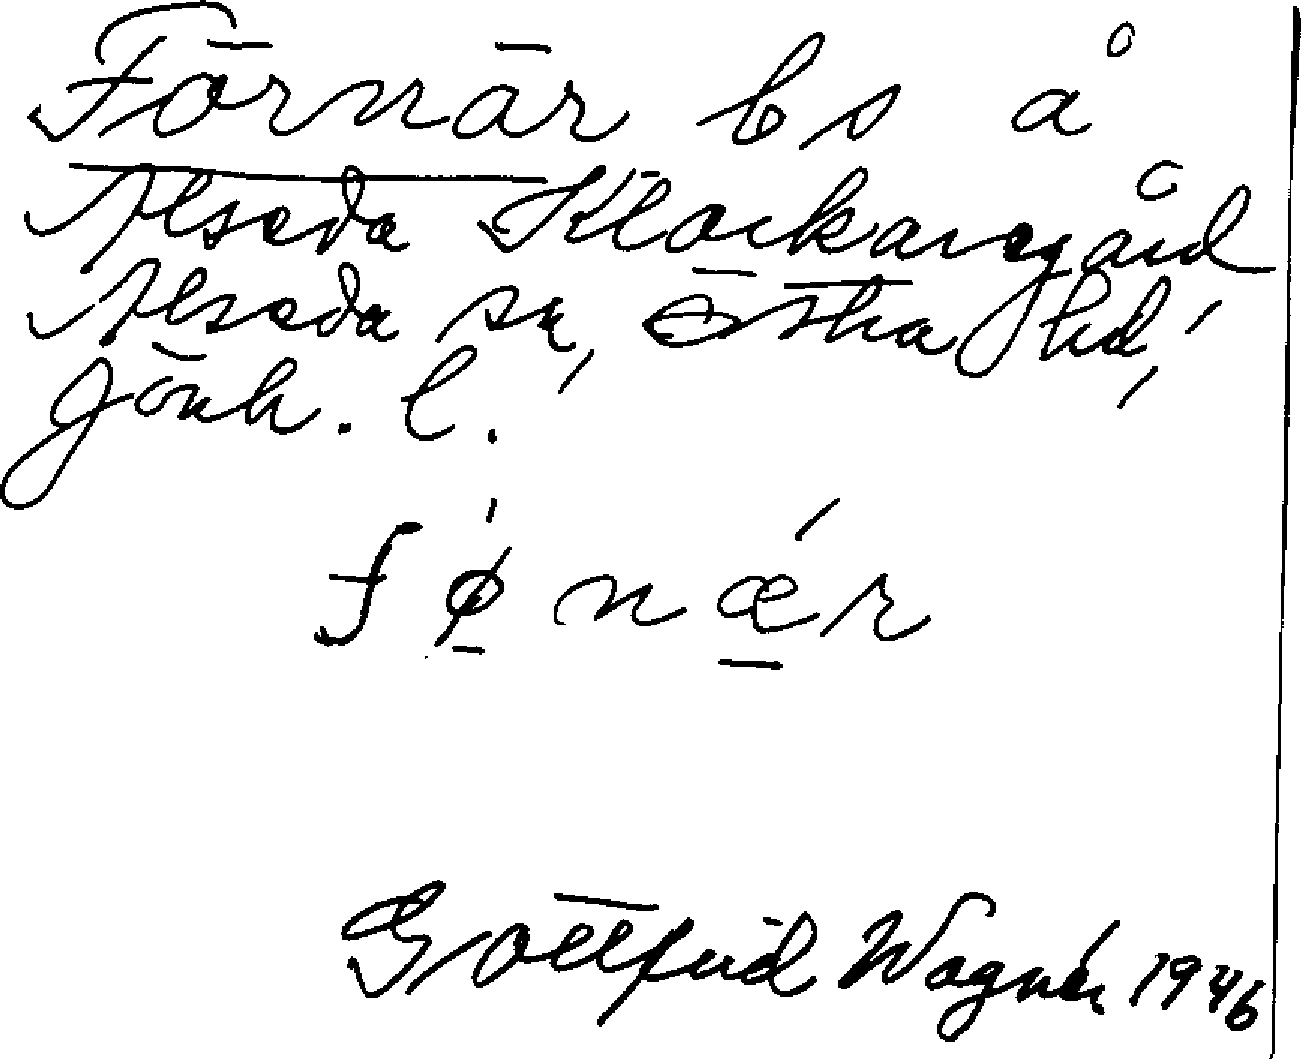 Förnär bs å
Alseda Klockaregård
Alseda sn, Östra hd,
Jönk. l.
fǿ̠nǽ̠r
Gottfrid Wagnér 1946